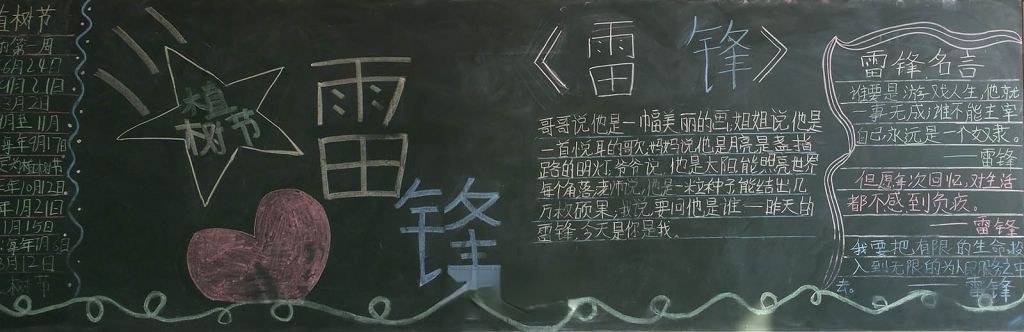 植树节
第一周
6月24日
9月21日
3月2日
月至11月
每年9月1日
年10月12日
年1月21日
1月15日
3月12日
树节
植
树节
雷
锋
《雷锋》
哥哥说他是一幅美丽的画,姐姐说,他是
一首悦耳的歌,妈妈说,他是月亮是盏指
路的明灯,爷爷说,他是太阳能照亮世界
每个角落,老师说,他是一米这种子能结出几
万枚硕果,我说,要问他是谁——昨天的
雷锋,今天是你是我。
雷锋名言
谁要是游戏人生,他就
一事无成;谁不能主宰
自己永远是一个奴隶。
——雷锋
但愿每次回忆,对生活
都不感到负疚。
——雷锋
我要把有限的生命投
入到无限的为人民服务之中
去。——雷锋